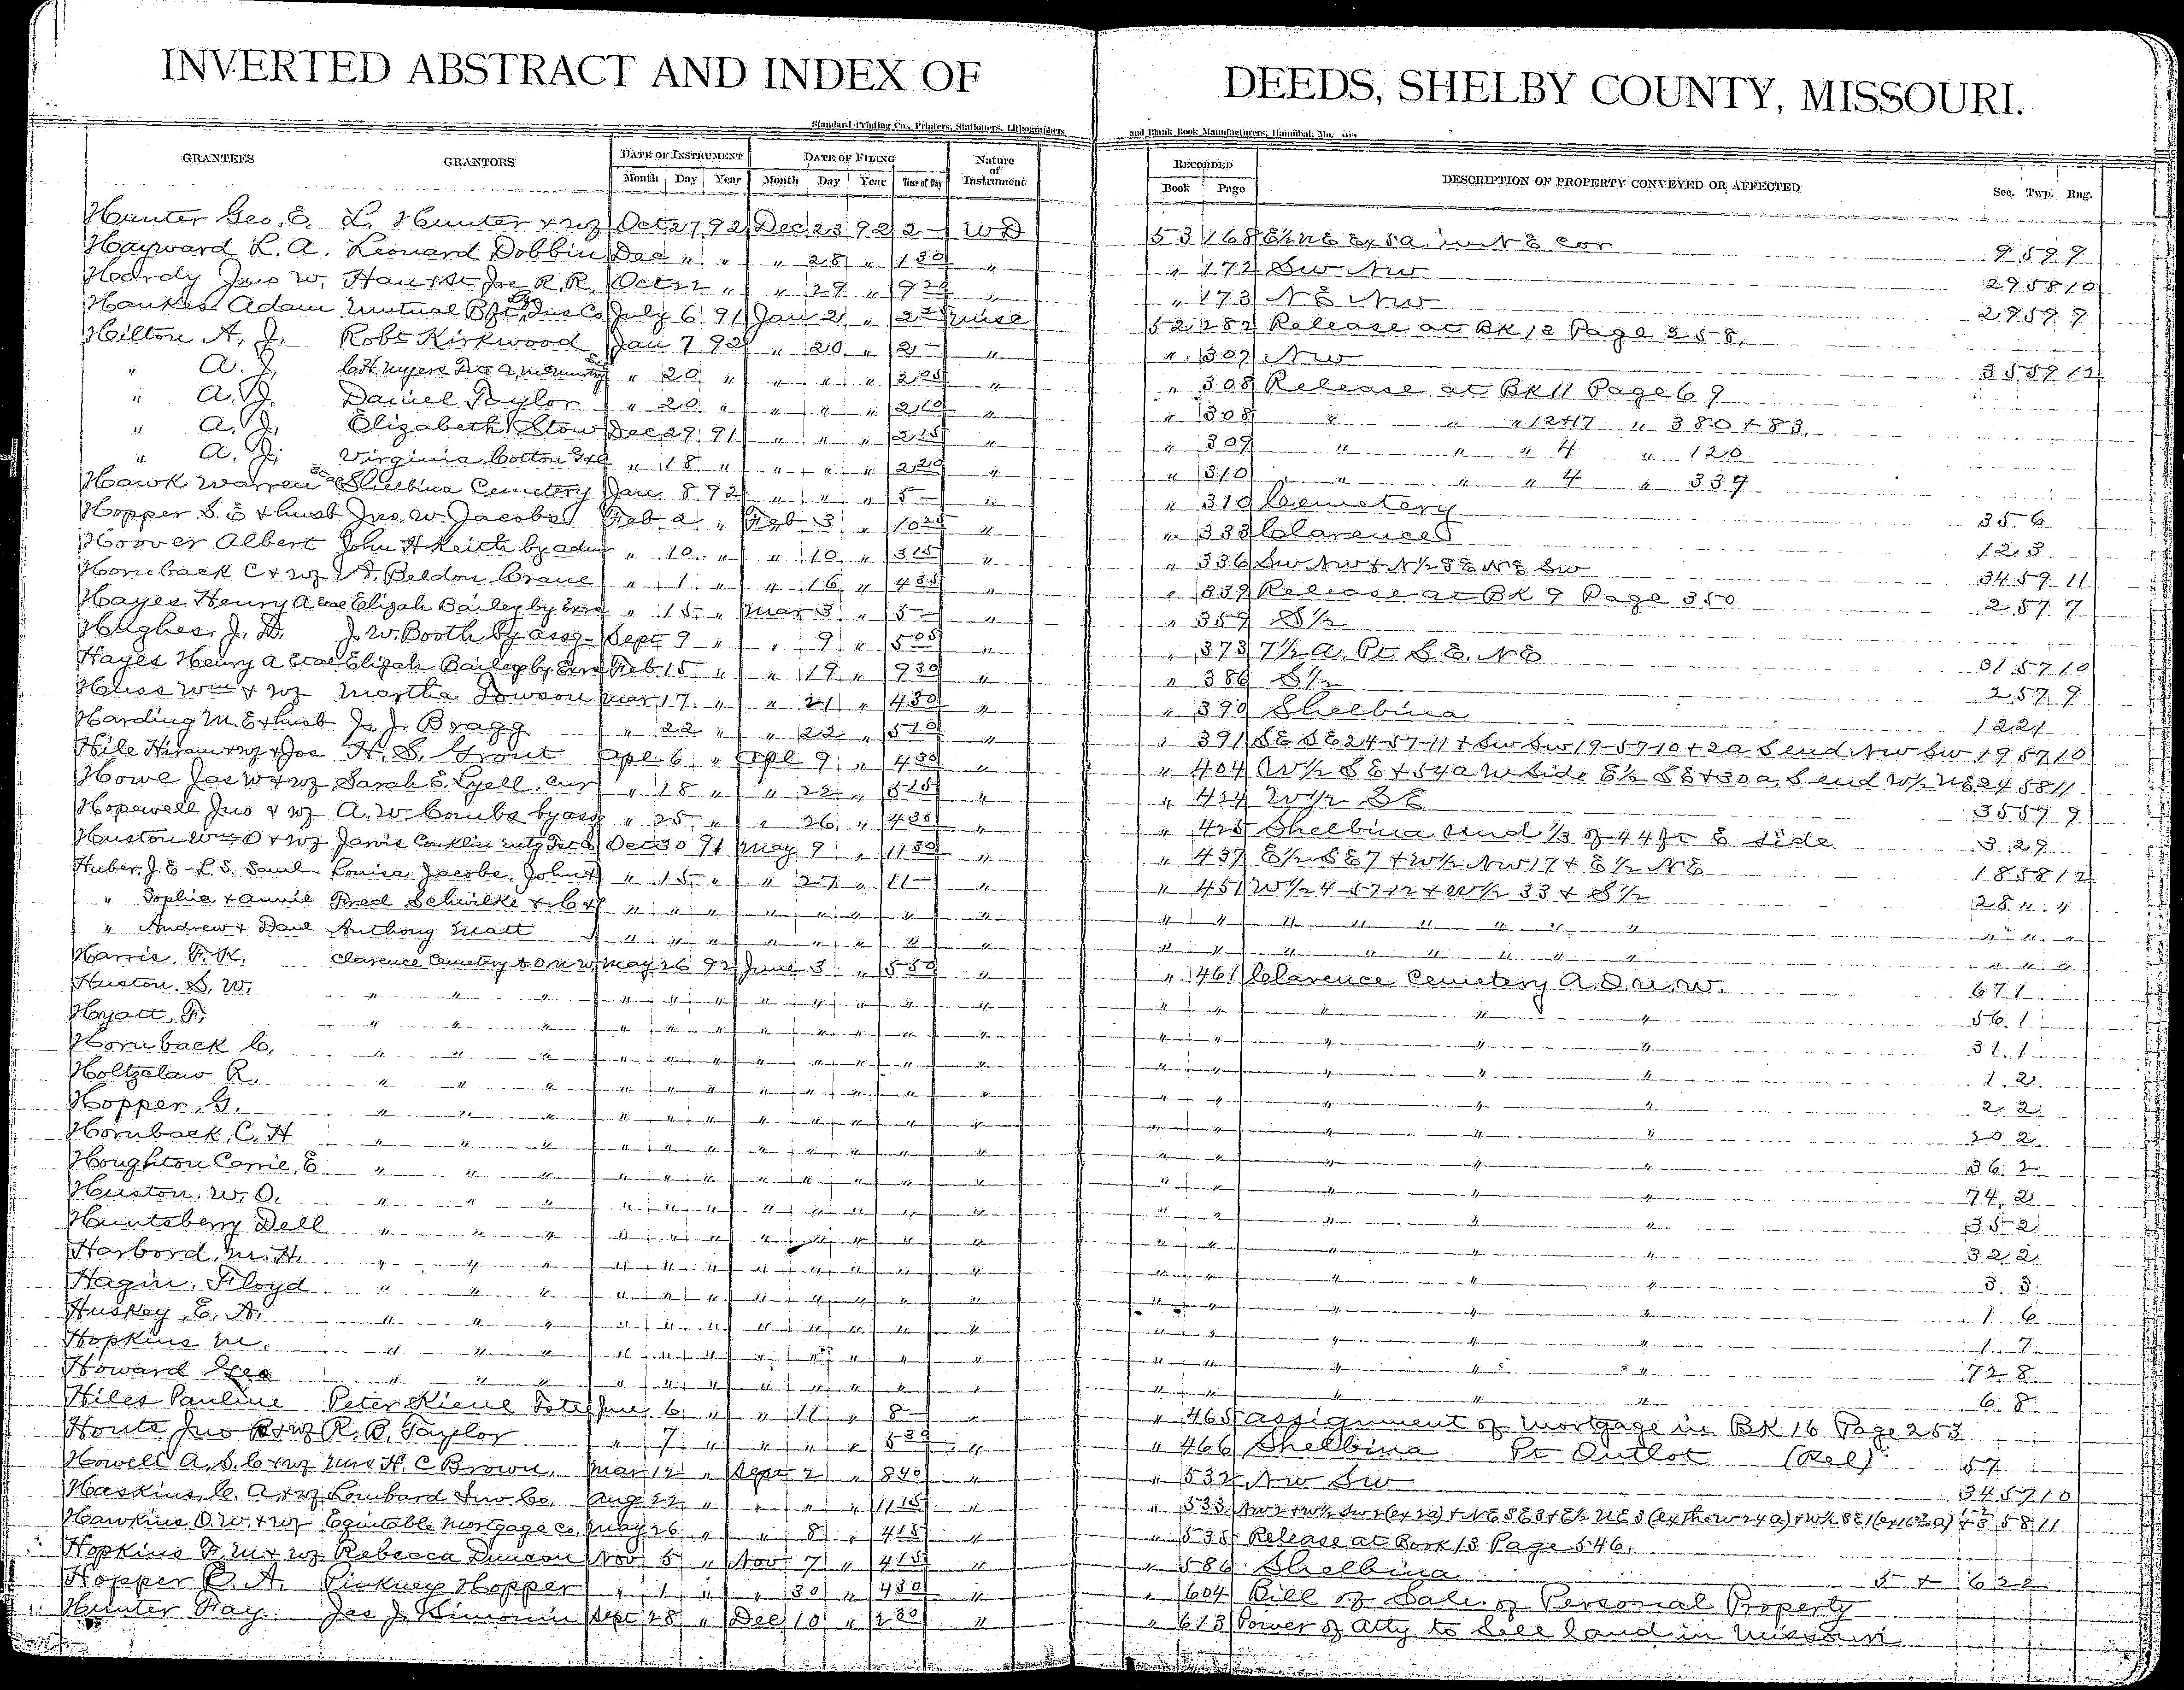 INVERTED ABSTRACT AND INDEX OF DEEDS, SHELBY COUNTY, MISSOURI.
Standard Printing Co., Printers, Stationers, Lithographers and Blank Book Manufacturers, Hannibal, Mo.
GRANTEES GRANTORS DATE OF INSTRUMENT DATE OF FILING Nature of Instrument RECORDED DESCRIPTION OF PROPERTY CONVEYED OR AFFECTED Sec. Twp. Rng.
Month Day Year Month Day Year Time of Day Book Page
Hunter Geo. E. L. Hunter & wf Oct 27 92 Dec 23 92 2 - WD 53 168 E½ NE Ex 5a. in NE cor 9 59 9
Hayward L. A. Leonard Dobbin Dec " " " 28 " 130 " " 172 SW NW 29 58 10
Hardy Jno W. Han & St Joe R.R. Oct 22 " " 29 " 920 " " 173 NE NW 29 59 9
Hankes Adam Mutual Bft Life Ins Co July 6 91 Jan 2 " Misc 52 282 Release at BK 12 Page 258.
Hilton A. J. Robt Kirkwood Jan 7 92 " 20 " 2 - " " 307 NW 35 59 12
" A. J. C. H. Myers " 20 " " " " 205 " " 308 Release at BK 11 Page 69
" A. J. Daniel Taylor " 20 " " " " 210 " " 308 " " " 12 & 17 " 380 & 83.
" A. J. Elizabeth Stow Dec 29 91 " " " 215 " " 309 " " " 4 " 120
" A. J. Virginia Cotton " 18 " " " " 220 " " 310 " " " 4 " 339
Hawk Warren Shelbina Cemetery Jan 8 92 " " " 5 - " " 310 Cemetery 35 6
Hopper S. E & husb Jno. W. Jacobs Feb 2 " Feb 3 " 1020 " " 333 Clarence 12 3
Hoover Albert John H Keith by adm " 10 " " 10 " 315 " " 336 SW NW & N½ SE NE SW 34 59 11
Hornback C & wf A. Beldon Crane " 1 " " 16 " 435 " " 339 Release at BK 9 Page 350
Hayes Henry A et al Elijah Bailey by Exrs " 15 " Mar 3 " 5 - " " 359 S½ 2 57 9
Hughes. J. D. J. W. Booth by assg - Sept 9 " " 9 " 505 " " 373 7½ A. Pt SE. NE 31 57 10
Hayes Henry A et al Elijah Bailey by Exrs Feb 15 " " 19 " 930 " " 386 S½ 2 57 9
Huss Wm & wf Martha Towson Mar 17 " " 21 " 430 " " 390 Shelbina 12 21
Harding M. E & husb J. J. Bragg " 22 " " 22 " 510 " " 391 SE SE 24-57-11 & SW SW 19-57-10 & 2a S end NW SW 19 57 10
Hile Hiram & wf & Jos H. S. Grout Apl 6 " Apl 9 " 430 " " 404 W½ SE & 54a W Side E½ SE & 30a. S end W½ NE 24 58 11
Howe Jas W & wf Sarah E. Lyell. cur " 18 " " 22 " 515 " " 424 W½ SE 35 59 9
Hopewell Jno & wf A. W. Combs by assg " 25 " " 26 " 430 " " 425 Shelbina Und 1/3 of 44 ft E side 3 29
Huston Wm O & wf Jarvis Conklin Mtg Tr Co Oct 30 91 May 9 " 1130 " " 437 E½ SE 7 & W½ NW 17 & E½ NE 18 58 12
Huber, J. E - L. S. Saml - Louisa Jacobs, John & " 15 " " 27 " 11 - " " 451 W½ 4-57-12 & W½ 33 & S½ 28 " "
" Sophia & Annie Fred Schwilke " " " " " " " " " " " " " " " " " " "
" Andrew & Danl Anthony Matt " " " " " " " " " " " " " " " " " " "
Harris. F. K. Clarence Cemetery A O U W. May 26 92 June 3 " 550 " " 461 Clarence Cemetery A. O. U. W. 67 1
Huston. S. W. " " " " " " " " " " " " " " " " 56 1
Hyatt, F. " " " " " " " " " " " " " " " " 31 1
Hornback C. " " " " " " " " " " " " " " " " 1 2
Holtzclaw R. " " " " " " " " " " " " " " " " 2 2
Hopper, G. " " " " " " " " " " " " " " " " 20 2
Hornback, C. H " " " " " " " " " " " " " " " " 36 2
Houghton Carrie, E " " " " " " " " " " " " " " " " 74 2
Huston. W. O. " " " " " " " " " " " " " " " " 35 2
Huntsberry Dell " " " " " " " " " " " " " " " " 32 2
Harbord. M. H. " " " " " " " " " " " " " " " " 3 3
Hagin. Floyd " " " " " " " " " " " " " " " " 1 6
Huskey, E. A. " " " " " " " " " " " " " " " " 1 7
Hopkins M. " " " " " " " " " " " " " " " " 72 8
Howard Geo " " " " " " " " " " " " " " " " 6 8
Hiles Pauline Peter Kiene June 6 " " 11 " 8 - " " 465 Assignment of Mortgage in BK 16 Page 253
Houte Jno B & wf R. B. Taylor " 7 " " " " 530 " " 466 Shelbina Pt Outlot (Rel) 57
Howell A. S. C & wf Mrs H. C Brown. Mar 12 " Sept 2 " 840 " " 532 NW SW 34 57 10
Haskins, C. A. & wf Lombard Inv Co. Aug 22 " " " " 1115 " " 533
Hawkins O. W. & wf Equitable Mortgage Co. May 26 " " 8 " 415 " " 535 Release at Book 13 Page 546.
Hopkins F. M & wf Rebecca Duncan Nov 5 " Nov 7 " 415 " " 586 Shelbina 5 & 6 22
Hopper P. A. Pinkney Hopper " 1 " " 30 " 430 " " 604 Bill of Sale of Personal Property
Hunter Fay. Jas J. Simonin Sept 28 " Dec 10 " 230 " " 613 Power of Atty to Sell land in Missouri